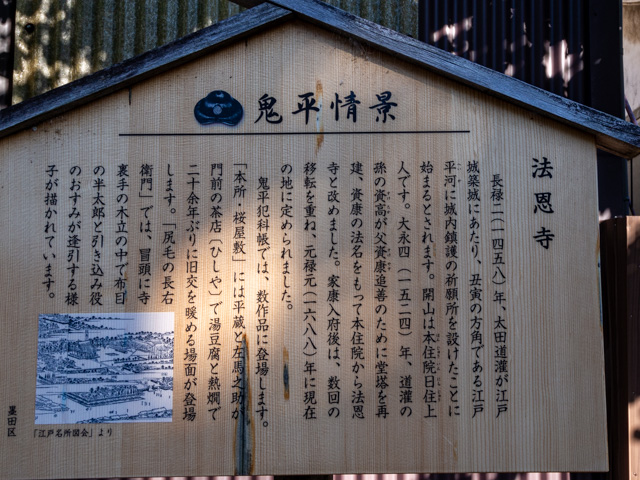 鬼平情景
法恩寺
長禄二（一四五八）年、太田道灌が江戸
城築城にあたり、丑寅の方角である江戸
平河に城内鎮護の祈願所を設けたことに
始まるとされます。開山は本住院日住上
人です。大永四（一五二四）年、道灌の
孫の資高が父資康追善のために堂塔を再
建、資康の法名をもって本住院から法恩
寺と改めました。家康入府後は、数回の
移転を重ね、元禄元（一六八八）年に現在
の地に定められました。
鬼平犯科帳では、数作品に登場します。
「本所・桜屋敷」には平蔵と左馬之助が
門前の茶店（ひしや）で湯豆腐と熱燗で
二十余年ぶりに旧交を暖める場面が登場
します。「尻毛の長右
衛門」では、冒頭に寺
裏手の木立の中で布目
の半太郎と引き込み役
のおすみが逢引する様
子が描かれています。
「江戸名所図会」より
墨田区